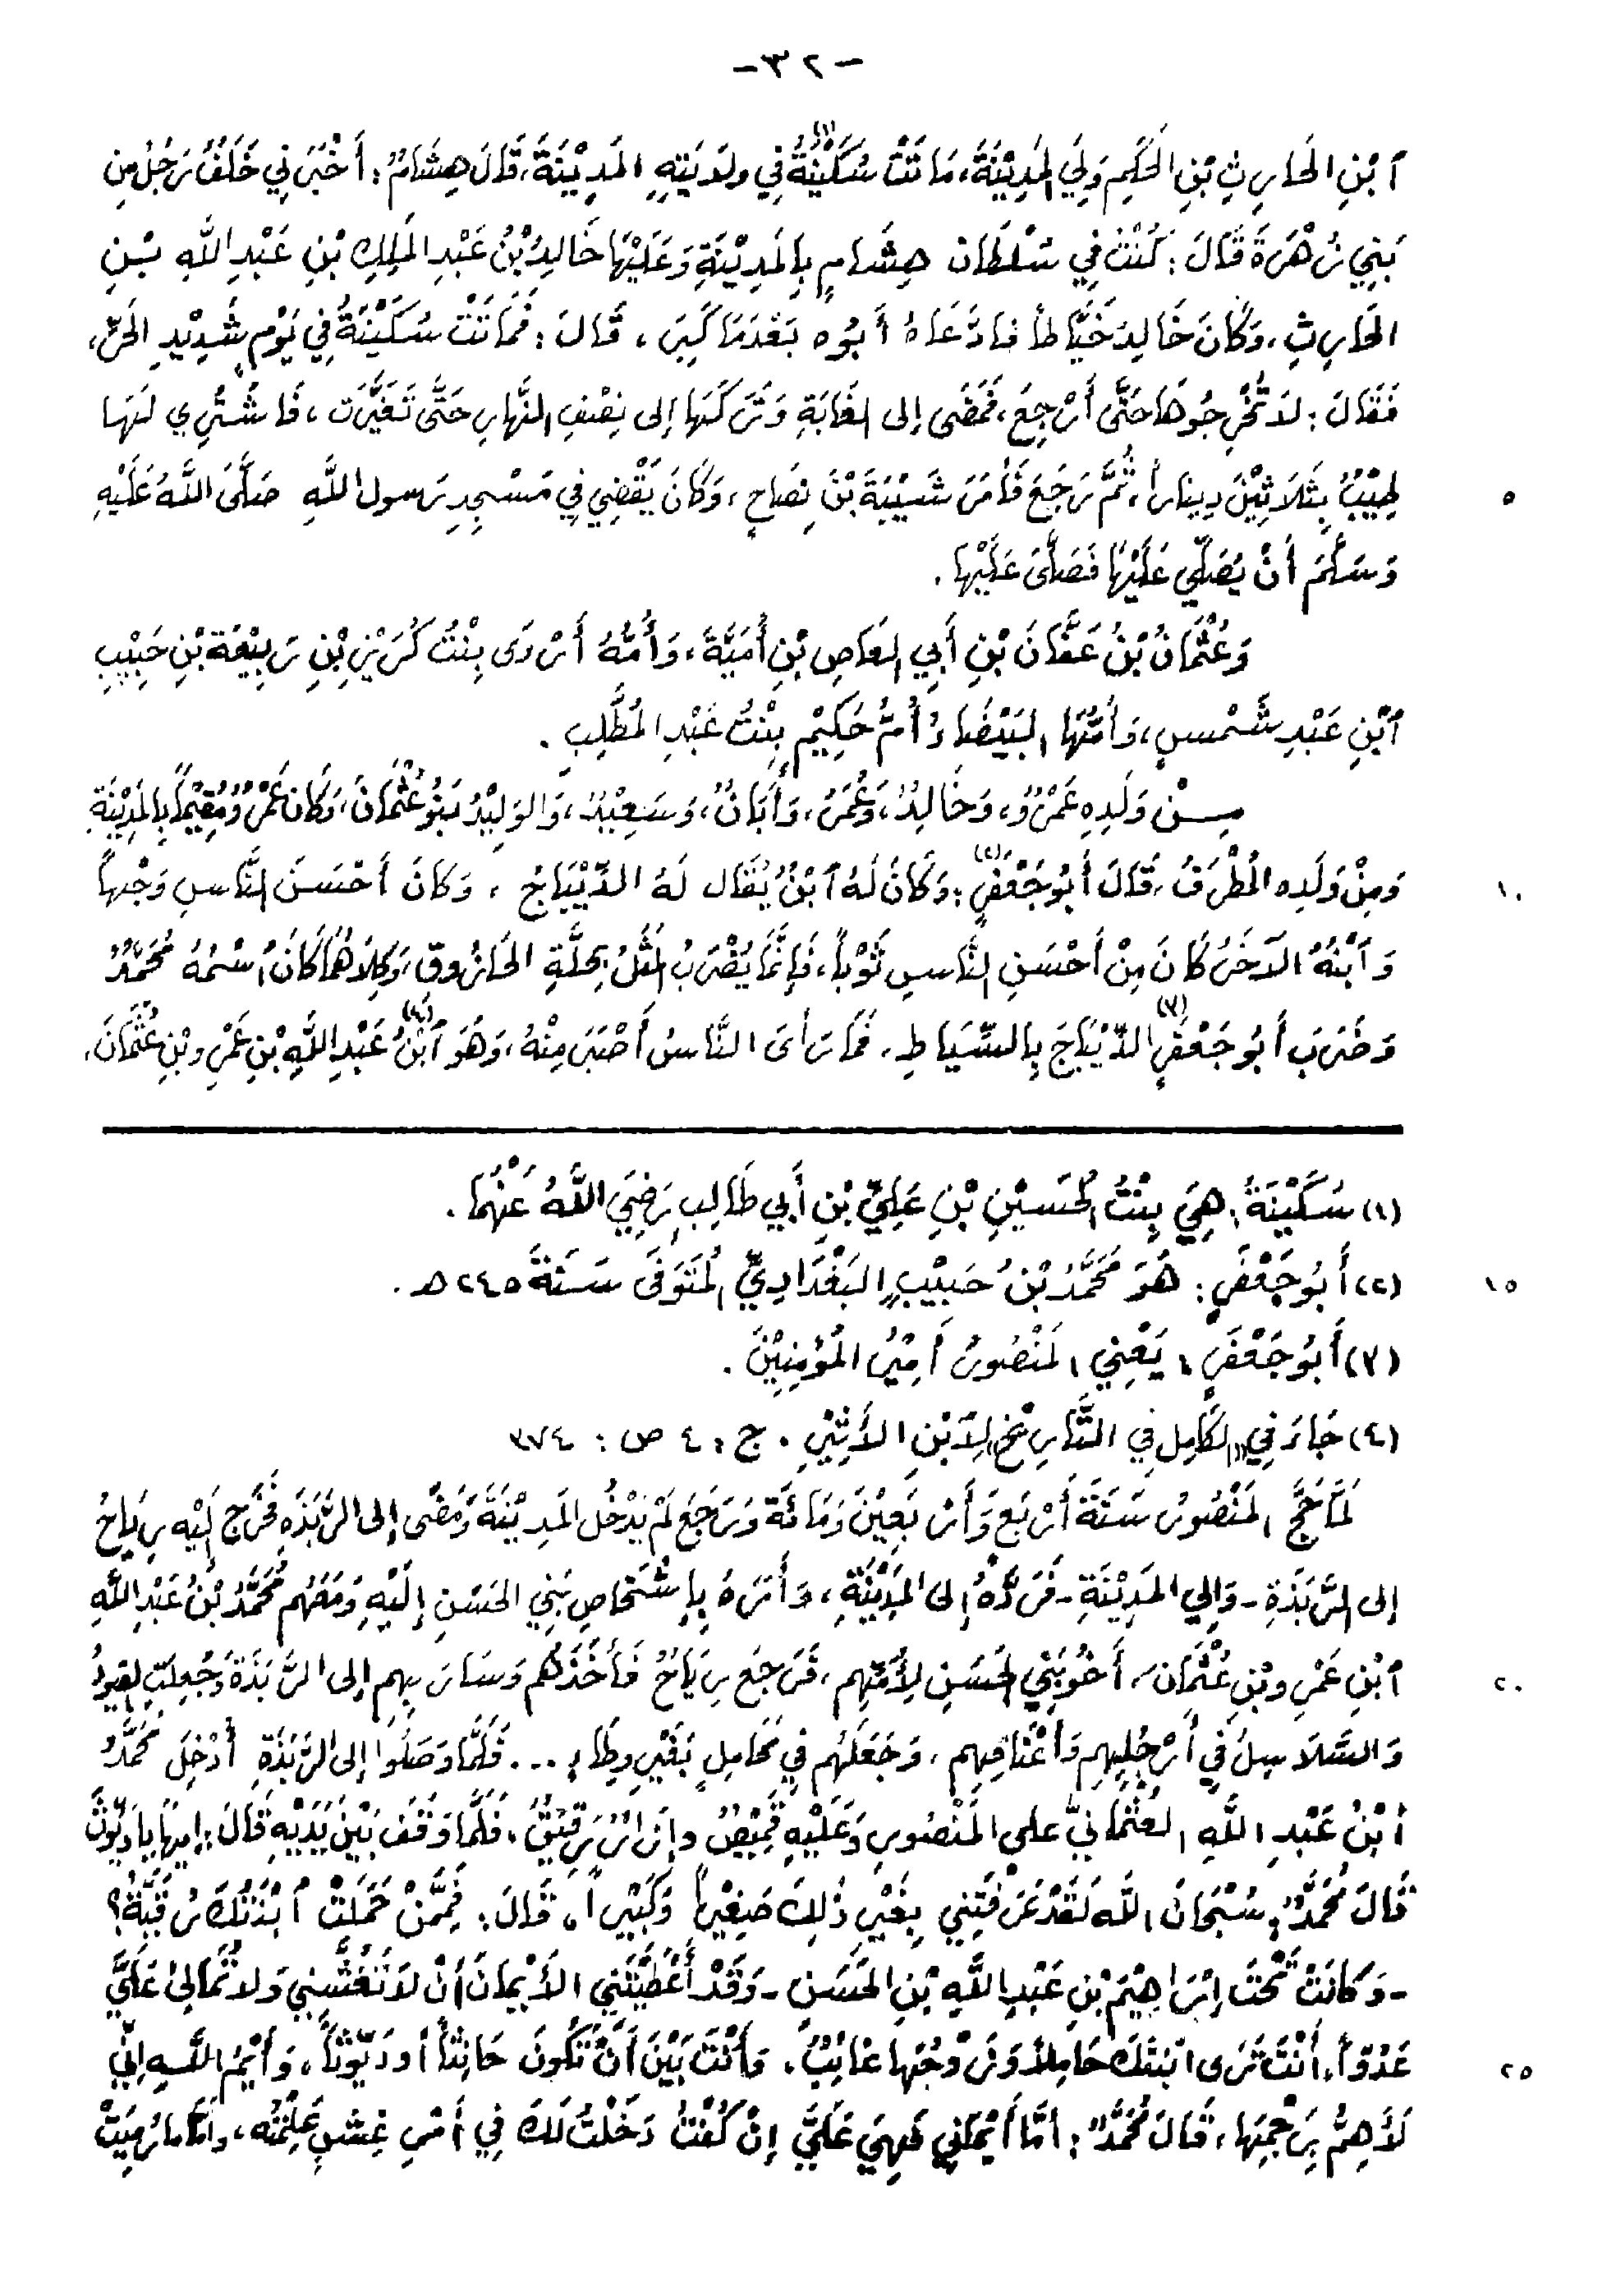 -٣٢-
ٱبْنِ الحَارِثِ بْنِ الحَكَمِ وَلِيَ المَدِيْنَةَ، مَاتَتْ سُكَيْنَةُ(١) فِي وِلَايَتِهِ المَدِيْنَةَ، قَالَ هِشَامٌ: أَخْبَرَنِي خَلَفٌ رَجُلٌ مِن
بَنِي زُهْرَةَ قَالَ: كُنْتُ فِي سُلْطَان هِشَامٍ بِالمَدِيْنَةِ وَعَلَيْهَا خَالِدُ بْنُ عَبْدِ المَلِكِ بْنِ عَبْدِ اللهِ بْنِ
الحَارِثِ، وَكَانَ خَالِدٌ خَيَّاطاً فادَّعَاهُ أَبُوه بَعْدَمَا كَبِرَ، قَالَ: فَمَاتَتْ سُكَيْنَةُ فِي يَوْمٍ شَدِيْدِ الحَرِّ،
فَقَالَ: لَا تُخْرِجُوهَا حَتَّى أَرْجِعَ، فَمَضَى إلى الغَابَةِ وَتَرَكَهَا إلى نِصْفِ النَّهَارِ حَتَّى تَغَيَّرَت، فَاشْتُرِي لَهَا
طِيْبٌ بِثَلَاثِيْنَ دِينَاراً، ثُمَّ رَجَعَ فَأَمَرَ شَيْبَةَ بْنَ نِصَاحٍ، وَكَانَ يَقْضِي فِي مَسْجِدِ رَسول اللَّهِ صَلَّى اللَّهُ عَلَيْهِ
٥
وَسَلَّمَ أَنْ يُصَلِّيَ عَلَيْهَا فَصَلَّى عَلَيْهَا.
وَعُثْمَانُ بْنُ عَفَّانَ بْنِ أَبِي العَاصِ بْنِ أُمَيَّةَ، وَأُمُّهُ أَرْوَى بِنْتُ كُرَيْزِ بْنِ رَبِيْعَة بْنِ حَبِيْبِ
ٱبْنِ عَبْدِ شَمْسٍ، وَأُمُّهَا البَيْضَاءُ أُمُّ حَكِيْمٍ بِنْتُ عَبْدِ المُطَّلِبِ.
مِنْ وَلَدِهِ عَمْرٌو، وَخَالِدٌ، وَعُمَرُ، وَأَبَانٌ، وَسَعِيْدٌ، وَالوَلِيْدُ بَنُو عُثْمَانَ، وَكَانَ عَمْرٌو مُقِيْماً بِالمَدِيْنَةِ
وَمِنْ وَلَدِه المُطْرَفُ، قَالَ أَبُو جَعْفَرٍ(٢): وَكَانَ لَهُ ٱبْنٌ يُقَال لَهُ الدِّيْبَاجُ، وَكَانَ أَحْسَنَ النَّاسِ وَجْهاً
١٠
وَٱبْنُهُ الآخَرُ كَانَ مِنْ أَحْسَنِ النَّاسِ ثَوْباً، فَإِنَّمَا يُضْرَبُ المَثَلُ بِحُلَّةِ الحَازُوق، وَكِلَاهُمَا كَانَ اسْمُهُ مُحَمَّدٌ
وَضَرَبَ أَبُو جَعْفَرٍ(٣) الدِّيْبَاجَ بِالسِّيَاطِ، فَمَا رَأَى النَّاسُ أَصْبَرَ مِنْهُ، وَهُوَ ٱبْنُ(٤) عَبْدِ اللَّهِ بْنِ عَمْرِو بْنِ عُثْمَانَ،
(١) سُكَيْنَةُ: هِيَ بِنْتُ الحُسَيْنِ بْنِ عَلِيِّ بْنِ أَبِي طَالِبٍ رَضِيَ اللَّهُ عَنْهُمَا.
(٢) أَبُو جَعْفَرٍ: هُوَ مُحَمَّدُ بْنُ حَبِيْبٍ البَغْدَادِيُّ المُتَوَفَّى سَنَةَ ٢٤٥ هـ.
١٥
(٣) أَبُو جَعْفَرٍ: يَعْنِي المَنْصُورَ أَمِيْرَ المُؤْمِنِيْنَ.
(٤) جَاءَ فِي «الكَامِلِ فِي التَّارِيْخِ» لِابْنِ الأَثِيْرِ. ج: ٤ ص: ٣٧٤
لَمَّا حَجَّ المَنْصُورُ سَنَةَ أَرْبَعَ وَأَرْبَعِيْنَ وَمَائَة وَرَجَعَ لَمْ يَدْخُل المَدِيْنَةَ وَمَضَى إلى الرَّبَذَةِ فَخَرَجَ إلَيْه رِيَاحُ
إلى الرَّبَذَةِ - وَالِي المَدِيْنَةِ - فَرَدَّهُ إلى المَدِيْنَةِ، وَأَمَرَهُ بِإشْخَاصِ بَنِي الحَسَنِ إلَيْهِ وَمَعَهُم مُحَمَّدُ بْنُ عَبْدِ اللَّهِ
ٱبْنِ عَمْرِو بْنِ عُثْمَانَ، أَخُو بَنِي الحَسَنِ لِأُمِّهِم، فَرَجَعَ رِيَاحُ فَأَخَذَهُم وَسَارَ بِهِم إلى الرَّبَذَةَ وَجُعِلَتِ القُيُودُ
٢٠
وَالسَّلاسِلُ فِي أَرْجُلِهِم وَأَعْنَاقِهِم، وَجَعَلَهُم فِي مَحَامِلٍ بَغَيْرِ وِطَاءٍ ... فَلَمَّا وَصَلُوا إلى الرَّبَذَةِ أُدْخِلَ مُحَمَّدُ
ٱبْنُ عَبْدِ اللَّهِ العُثْمَانِيُّ على المَنْصُورِ وَعَلَيْهِ قَمِيْصٌ وإزَارٌ رَقِيْقٌ، فَلَمَّا وَقَفَ بَيْنَ يَدَيْهِ قَالَ: إيهاً يا دَيُّوثُ
قَالَ مُحَمَّدٌ: سُبْحَانَ اللَّه لَقَدْ عَرَفْتَنِي بِغَيْرِ ذٰلِكَ صَغِيْراً وَكَبِيْراً، قَالَ: فَمِمَّنْ حَمَلَتْ ٱبْنَتُكَ رُقَيَّةُ؟
- وَكَانَتْ تَحْتَ إبْرَاهِيْمَ بْنِ عَبْدِ اللَّهِ بْنِ الحَسَنِ - وَقَدْ أَعْطَيْتَنِي الأَيْمَانَ أَنْ لَا تَغُشَّنِي وَلا تُمَالِئَ عَلَيَّ
عَدُوّاً، أَنْتَ تَرَى ابْنَتَكَ حَامِلاً وَزَوْجُهَا غَائِبٌ، وَأَنْتَ بَيْنَ أَنْ تَكُونَ حَانِثاً أو دَيُّوثاً، وَأَيْمُ اللَّهِ إنِّي
٢٥
لَأَهِمُّ بِرَجْمِهَا، قَالَ مُحَمَّدٌ: أَمَّا أَيْمَانِي فَهِيَ عَلَيَّ إنْ كُنْتُ دَخَلْتُ لَكَ فِي أَمْرِ غِشٍّ عَلِمْتُه، وأمَّا ما رُمِيَتْ